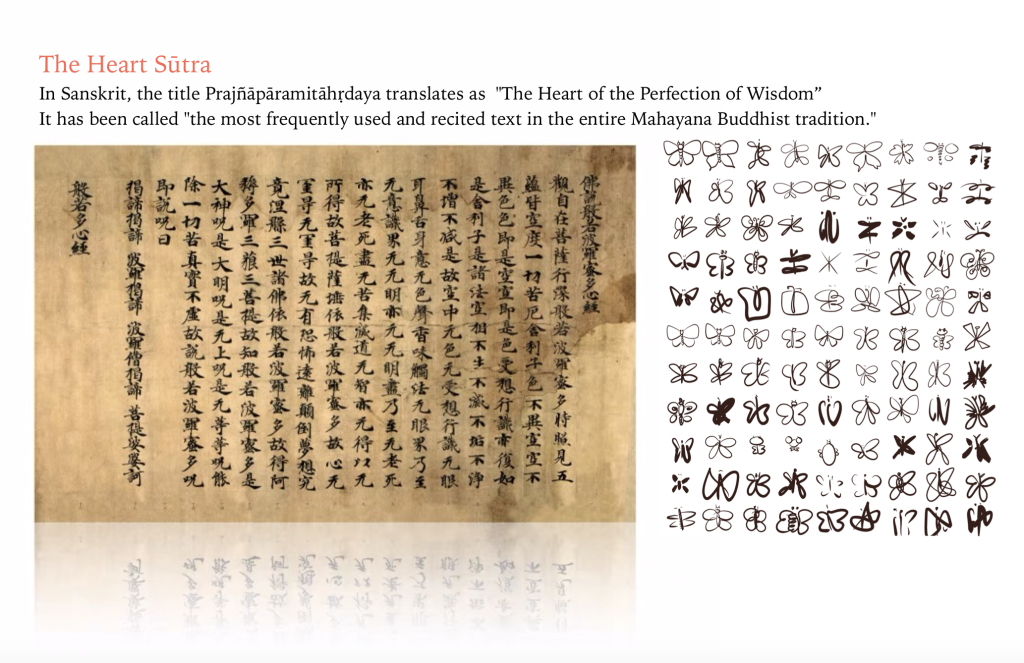 The Heart Sūtra
In Sanskrit, the title Prajñāpāramitāhṛdaya translates as "The Heart of the Perfection of Wisdom”
It has been called "the most frequently used and recited text in the entire Mahayana Buddhist tradition."
佛說般若波羅蜜多心經
觀自在菩薩行深般若波羅蜜多時照見五
蘊皆空度一切苦厄舍利子色不異空空不
異色色即是空空即是色受想行識亦復如
是舍利子是諸法空相不生不滅不垢不淨
不增不減是故空中无色无受想行識无眼
耳鼻舌身意无色聲香味觸法无眼界乃至
无意識界无无明亦无无明盡乃至无老死
亦无老死盡无苦集滅道无智亦无得以无
所得故菩提薩埵依般若波羅蜜多故心无
罣导无罣导故无有恐怖遠離顛倒夢想究
竟涅槃三世諸佛依般若波羅蜜多故得阿
耨多羅三藐三菩提故知般若波羅蜜多是
大神呪是大明呪是无上呪是无等等呪能
除一切苦真實不虛故說般若波羅蜜多呪
即說呪曰
揭諦揭諦 波羅揭諦 波羅僧揭諦 菩提娑婆訶
般若多心經